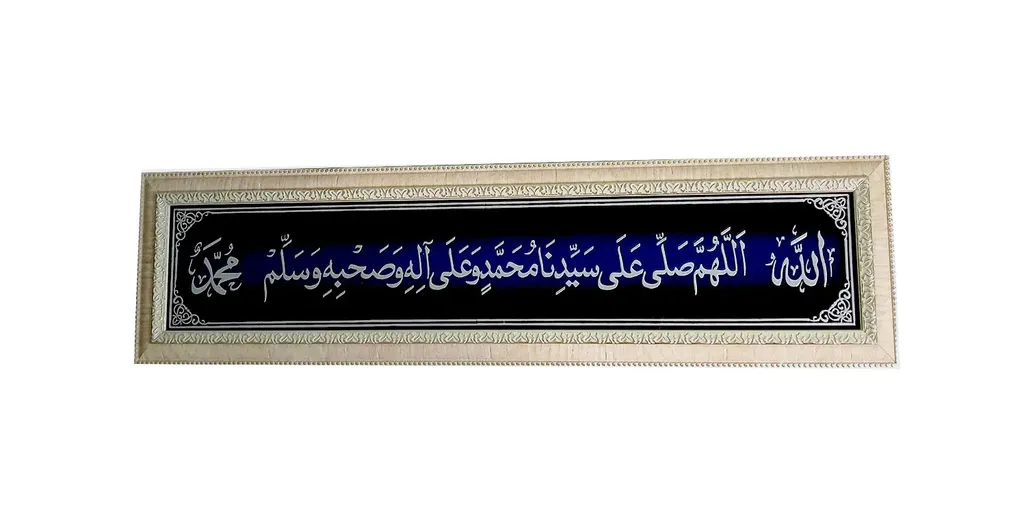 اللَّه
اَللَّهُمَّ صَلِّى عَلَى سَيِّدِنَا مُحَمَّدٍ وَعَلَى آلِهِ وَصَحْبِهِ وَسَلِّمْ
مُحَمَّدٌ